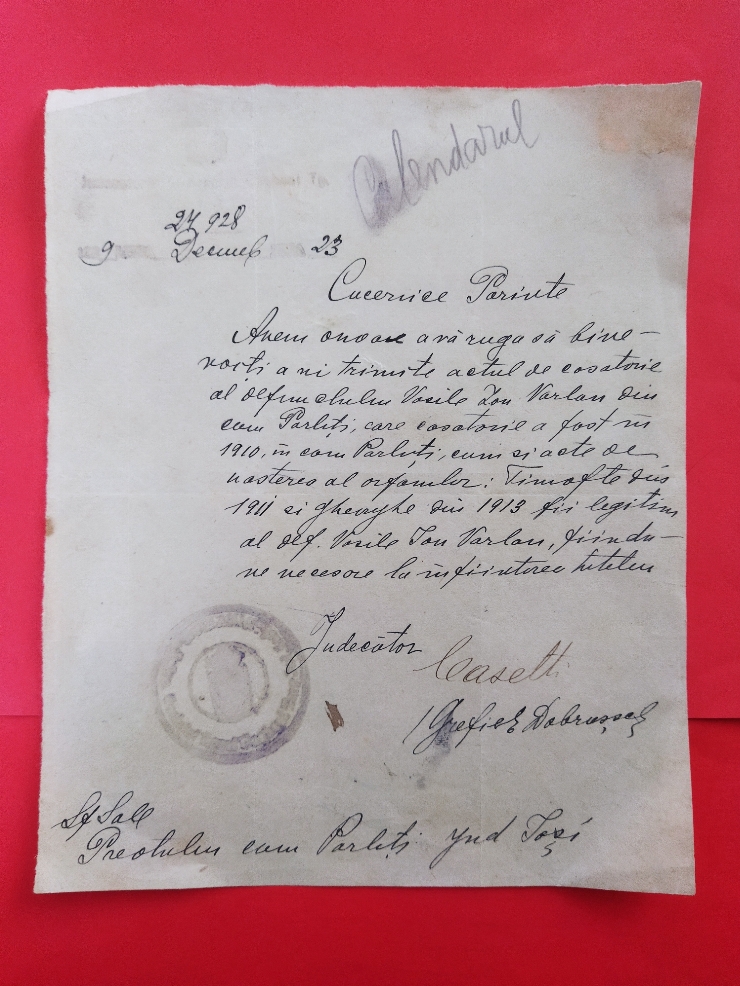 Calendarul
24 928
9 Decemb 23
Cucernice Parinte
Avem onoare a vă ruga să bine-
voiți a ni trimite actul de casatorie
al defunctului Vasile Ion Varlan din
com Parliți, care casatorie a fost în
1910, în com Parliți, cum si acte de
nasterea al orfanilor: Timofte din
1911 si Gheorghe din 1913 fii legitim
al def. Vasile Ion Varlan, fiindu-
ne necesare la înființarea tutelei
Judecător
Casetti
/ Grefier
Preotului com Parliți jud Iași